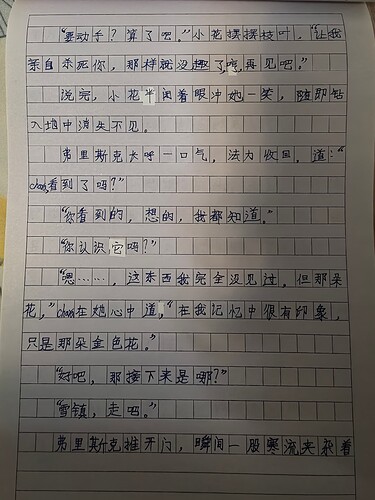 “要动手？算了吧。”小花摆摆枝叶，“让我
亲自杀死你，那样就没趣了，再见吧。”
说完，小花半闭着眼冲她一笑，随即钻
入地中消失不见。
弗里斯克长呼一口气，法力收回，道：“
chara看到了吗？”
“你看到的，想的，我都知道。”
“你认识它吗？”
“嗯……，这东西我完全没见过，但那朵
花，”chara在她心中道，“在我记忆中很有印象，
只是那朵金色花。”
“好吧，那接下来是哪？”
“雪镇，走吧。”
弗里斯克推开门，瞬间一股寒流夹杂着